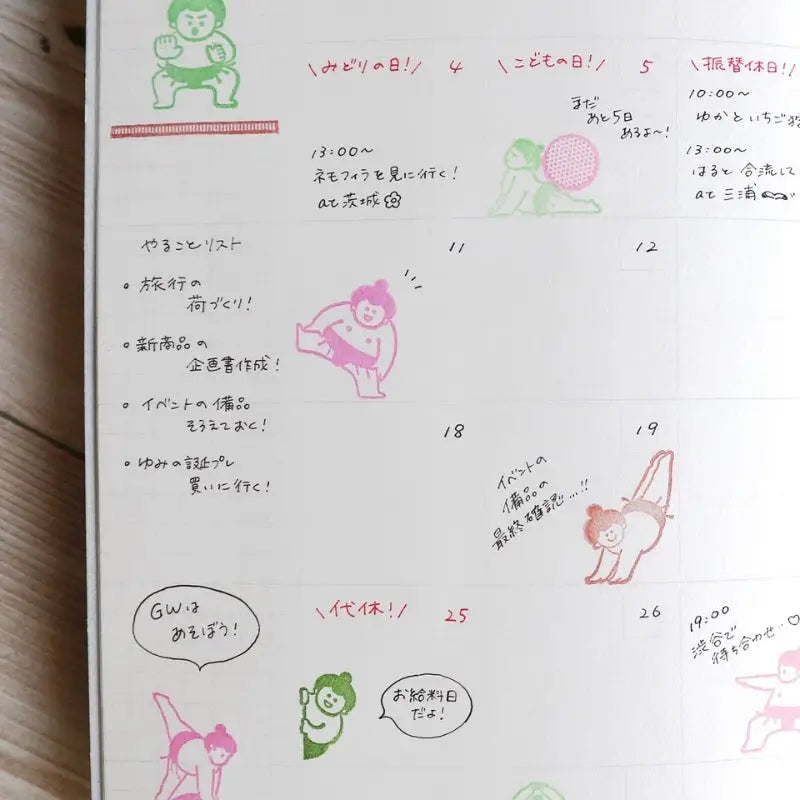 \みどりの日!/ 4
\こどもの日!/ 5
\振替休日!/
まだ
あと5日
あるよ~!
13:00~
ネモフィラを見に行く!
at茨城
10:00~
ゆかといちご狩
13:00~
はると合流して
at 三浦
やることリスト
11
12
・旅行の
荷づくり!
・新商品の
企画書作成!
・イベントの備品
そろえておく!
・ゆみの誕プレ
買いに行く!
18
19
イベントの
備品の
最終確認…!!
GWは
あそぼう!
\代休!/ 25
お給料日
だよ!
26
19:00
渋谷で
待ち合わせ…